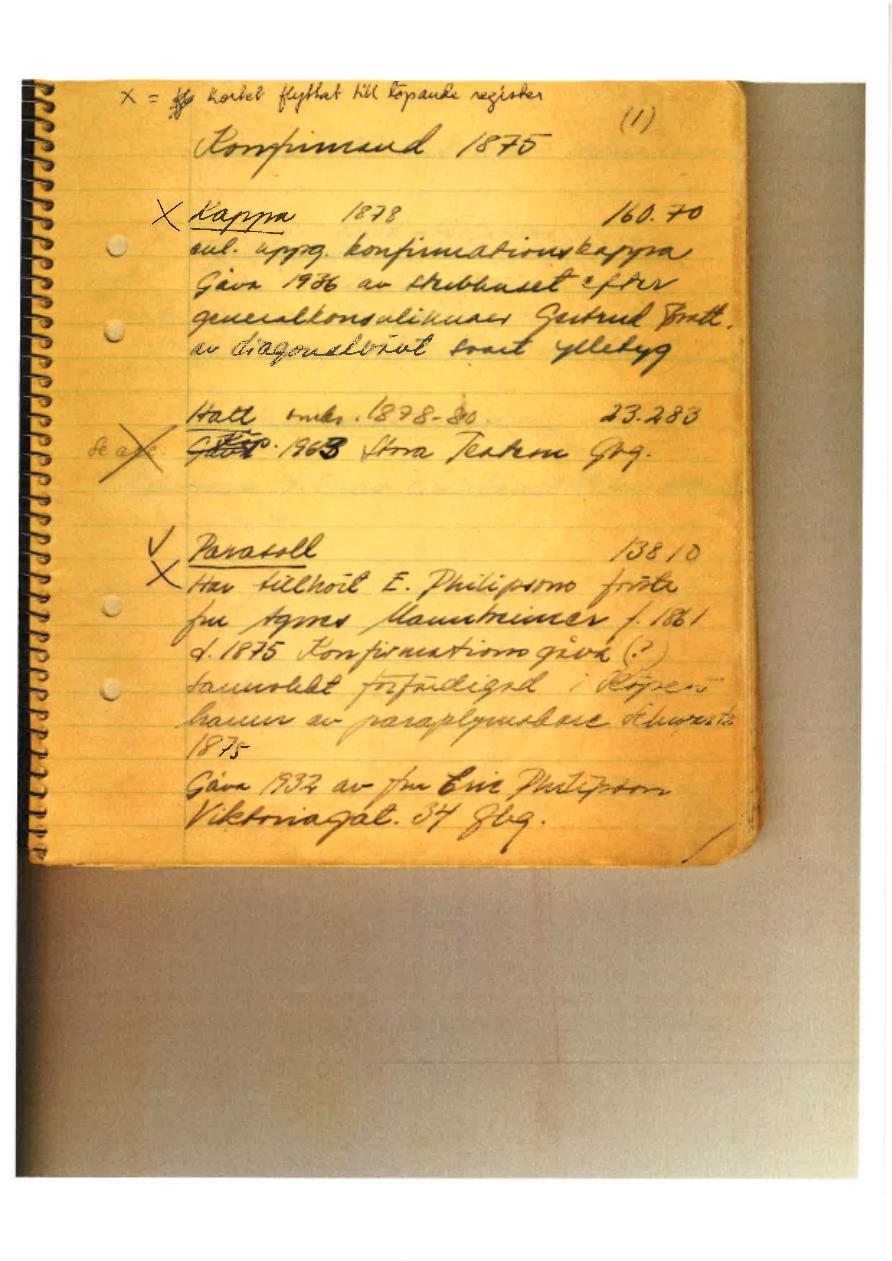 X = kortet flyttat till löpande register
(1)
Konfirmand 1875
X Kappa 1878 160.70
enl. uppg. konfirmationskappa
Gåva 1936 av sterbhuset efter
generalkonsulinnan Gertrud Bratt.
av diagonalvävt svart ylletyg
Hatt omkr. 1878-80. 23.283
Se acc. Köp. 1963 Stora Teatern Gbg.
V Parasoll 13810
X Har tillhört E. Philipsons första
fru Agnes Mannheimer f. 1861
d. 1875 Konfirmationsgåva (?)
sannolikt förfärdigad i Köpen
hamn av paraplymakare Schwartz
1875
Gåva 1932 av fru Eric Philipson
Viktoriagat. 34 Gbg.